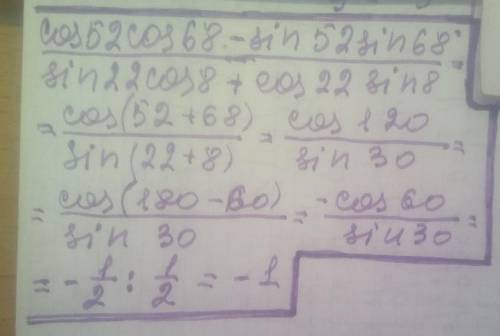 cos52cos68 - sin52sin68 =
sin22cos8 + cos22 sin8
= cos(52+68) = cos 120 =
sin(22+8) sin 30
= cos(180-60) = -cos60 =
sin 30 sin30
= - 1/2 : 1/2 = -1